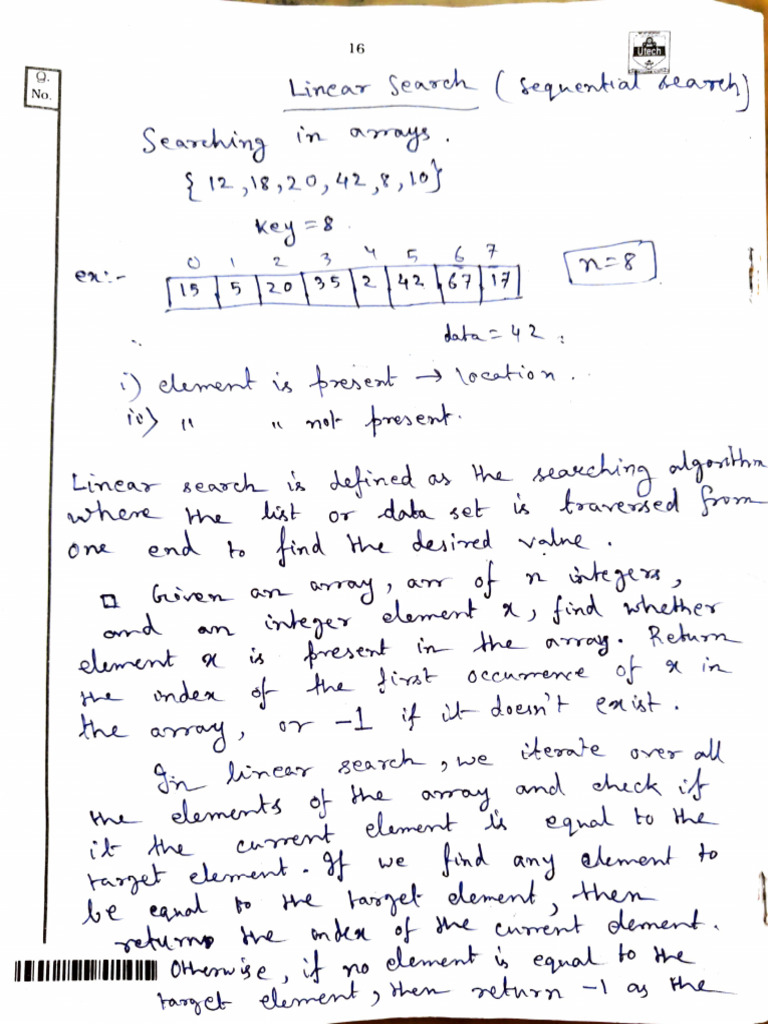 16
Utech
Q.
No.
Linear Search (sequential search)
Searching in arrays.
{12, 18, 20, 42, 8, 10}
key = 8
0 1 2 3 4 5 6 7
ex:- 15 5 20 35 2 42 67 17 n=8
data = 42
i) element is present → location.
ii) " " not present.
Linear search is defined as the searching algorithm
where the list or data set is traversed from
one end to find the desired value.
□ Given an array, arr of n integers,
and an integer element x, find whether
element x is present in the array. Return
the index of the first occurrence of x in
the array, or -1 if it doesn't exist.
In linear search, we iterate over all
the elements of the array and check if
it the current element is equal to the
target element. If we find any element to
be equal to the target element, then
return the index of the current element.
Otherwise, if no element is equal to the
target element, then return -1 as the